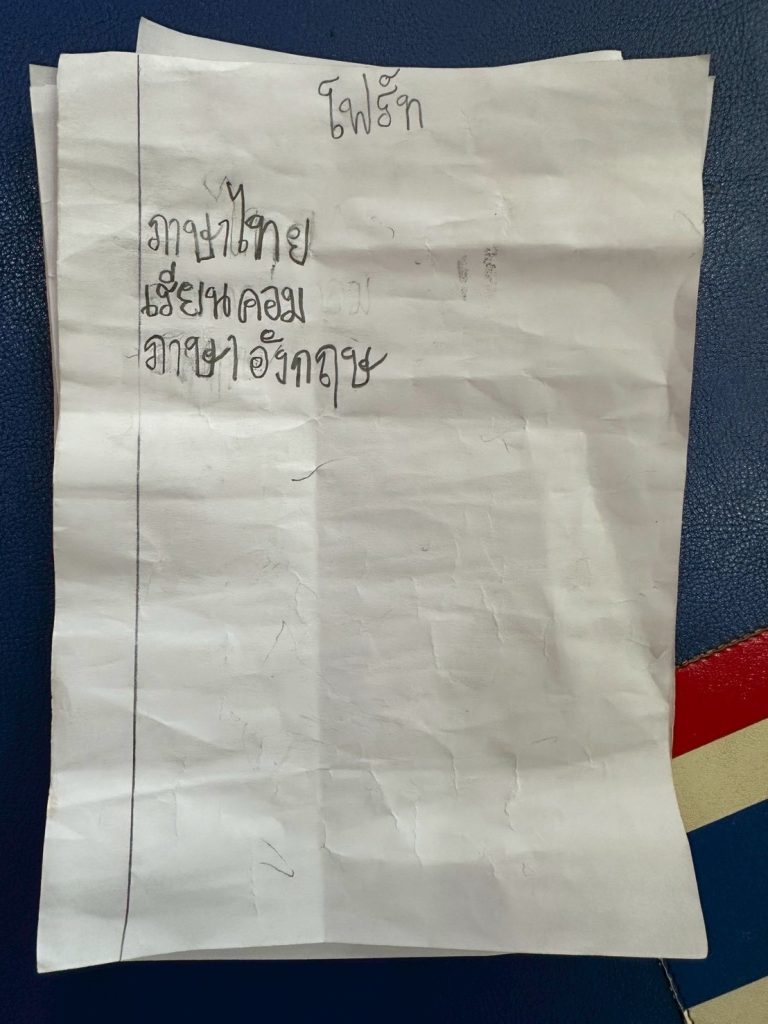 โฟร์ท
ภาษาไทย
เรียนคอม
ภาษาอังกฤษ